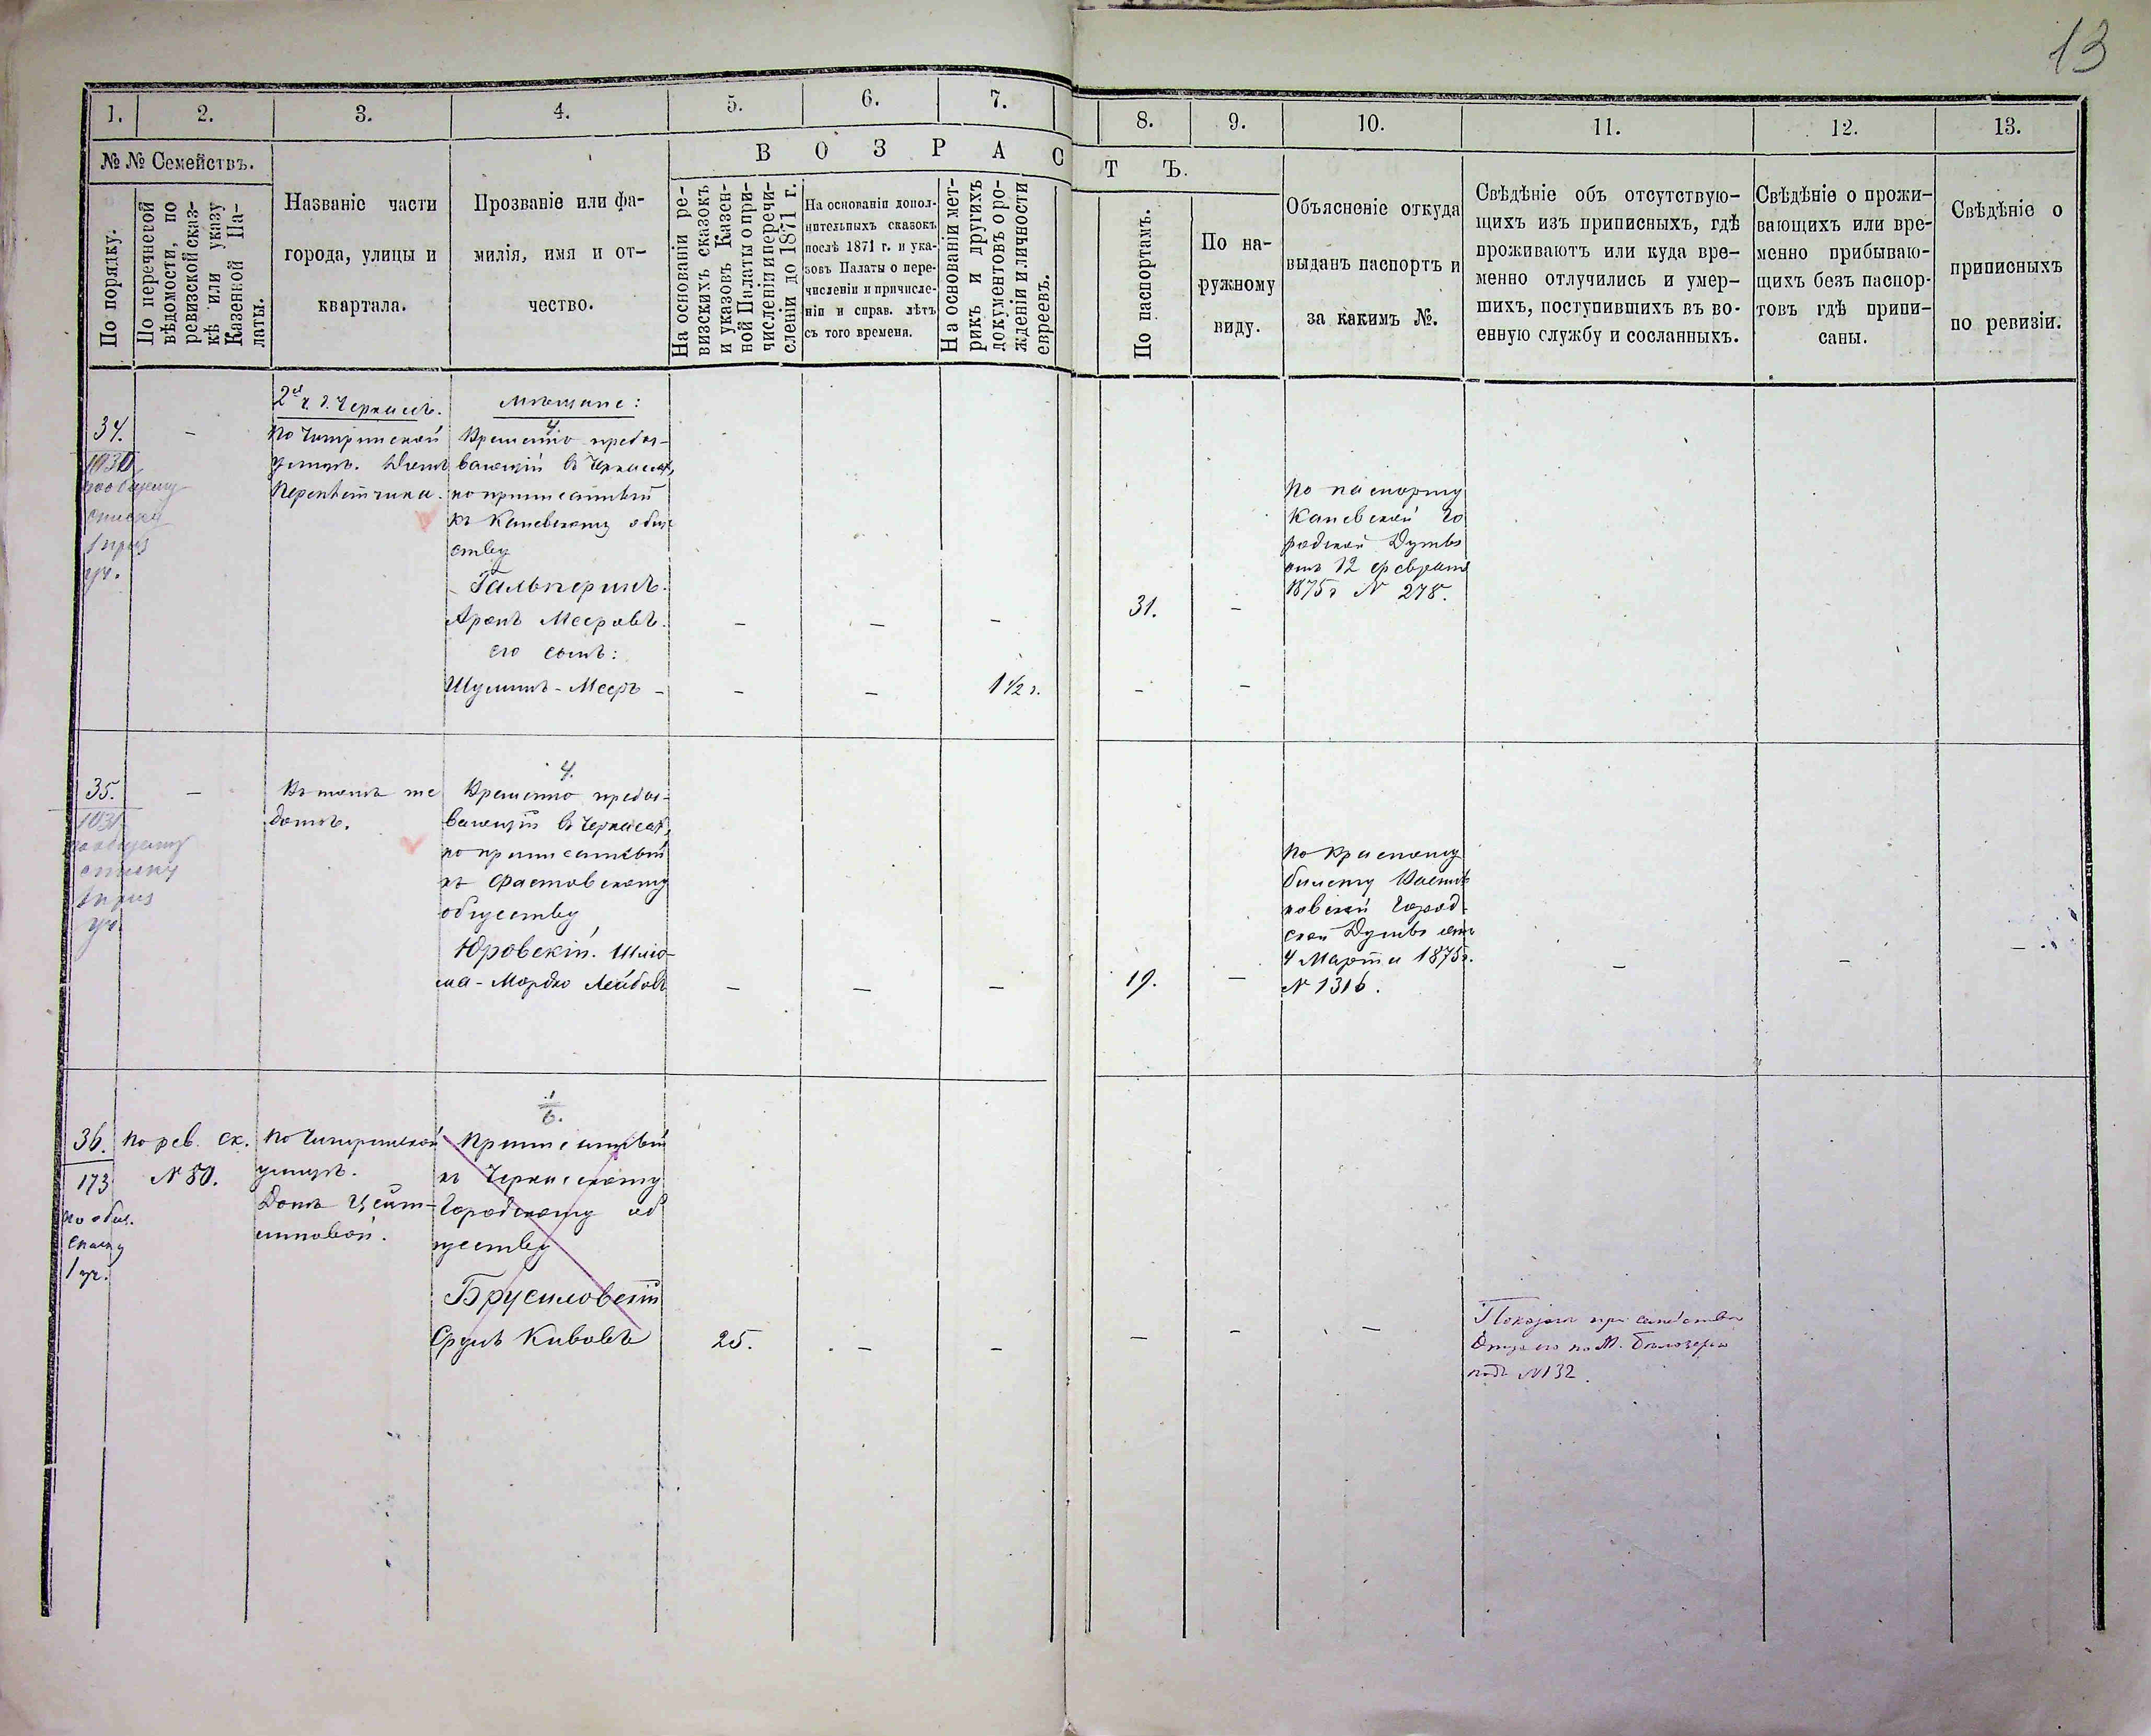 13
1. 2. 3. 4. 5. 6. 7. 8. 9. 10. 11. 12. 13.
№№ Семействъ.
По порядку.
По перечневой
вѣдомости, по
ревизской сказ-
кѣ или указу
Казенной Па-
латы.
Названіе части
города, улицы и
квартала.
Прозваніе или фа-
милія, имя и от-
чество.
ВОЗРАСТЪ.
На основаніи ре-
визскихъ сказокъ
и указовъ Казен-
ной Палаты о при-
численіи и перечи-
сленіи до 1871 г.
На основаніи допол-
нительныхъ сказокъ
послѣ 1871 г. и ука-
зовъ Палаты о пере-
численіи и причисле-
ніи и справ. лѣтъ
съ того времени.
На основаніи мет-
рикъ и другихъ
документовъ о ро-
жденіи и личности
евреевъ.
По паспортамъ.
По на-
ружному
виду.
Объясненіе откуда
выданъ паспортъ и
за какимъ №.
Свѣдѣніе объ отсутствую-
щихъ изъ приписныхъ, гдѣ
проживаютъ или куда вре-
менно отлучились и умер-
шихъ, поступившихъ въ во-
енную службу и сосланныхъ.
Свѣдѣніе о прожи-
вающихъ или вре-
менно прибываю-
щихъ безъ паспор-
товъ гдѣ припи-
саны.
Свѣдѣніе о
приписныхъ
по ревизіи.
34.
1030
по общему
списку
1 приз
уч.
–
2й ч. г. Черкассъ.
По Чигринской
улицѣ. Домъ
Перепѣтчика.
Мѣщане:
4.
Временно пребы-
вающій въ Черкасахъ,
но приписанный
къ Каневскому обще-
ству
Гальперинъ.
Аронъ Мееровъ. – – – 31. –
его сынъ:
Шулимъ-Мееръ – – – 1 1/2 г. – –
По паспорту
Каневской Го
родской Думы
отъ 12 февраля
1875 г № 278.
35.
1031
по общему
списку
1 приз
уч.
–
Въ томъ же
домѣ.
4.
Временно пребы-
вающій въ Черкасахъ,
но приписанный
къ Фастовскому
обществу
Юровскій. Шлю-
ма-Мордко Лейбовъ – – – 19. –
По красному
билету Василь
ковской Город-
ской Думы отъ
4 Марта 1875 г.
№ 1316.
– – –
36.
173
по общ.
списку
1 уч.
По рев. ск.
№ 50.
По Чигринской
улицѣ.
Домъ Цейт-
линовой.
1/6.
Приписанный
къ Черкасскому
Городскому об
ществу
Брусиловскій
Сруль Кивовъ 25. – – – – –
Показанъ при семействѣ
Отца его по М. Бѣлозерью
подъ №132.